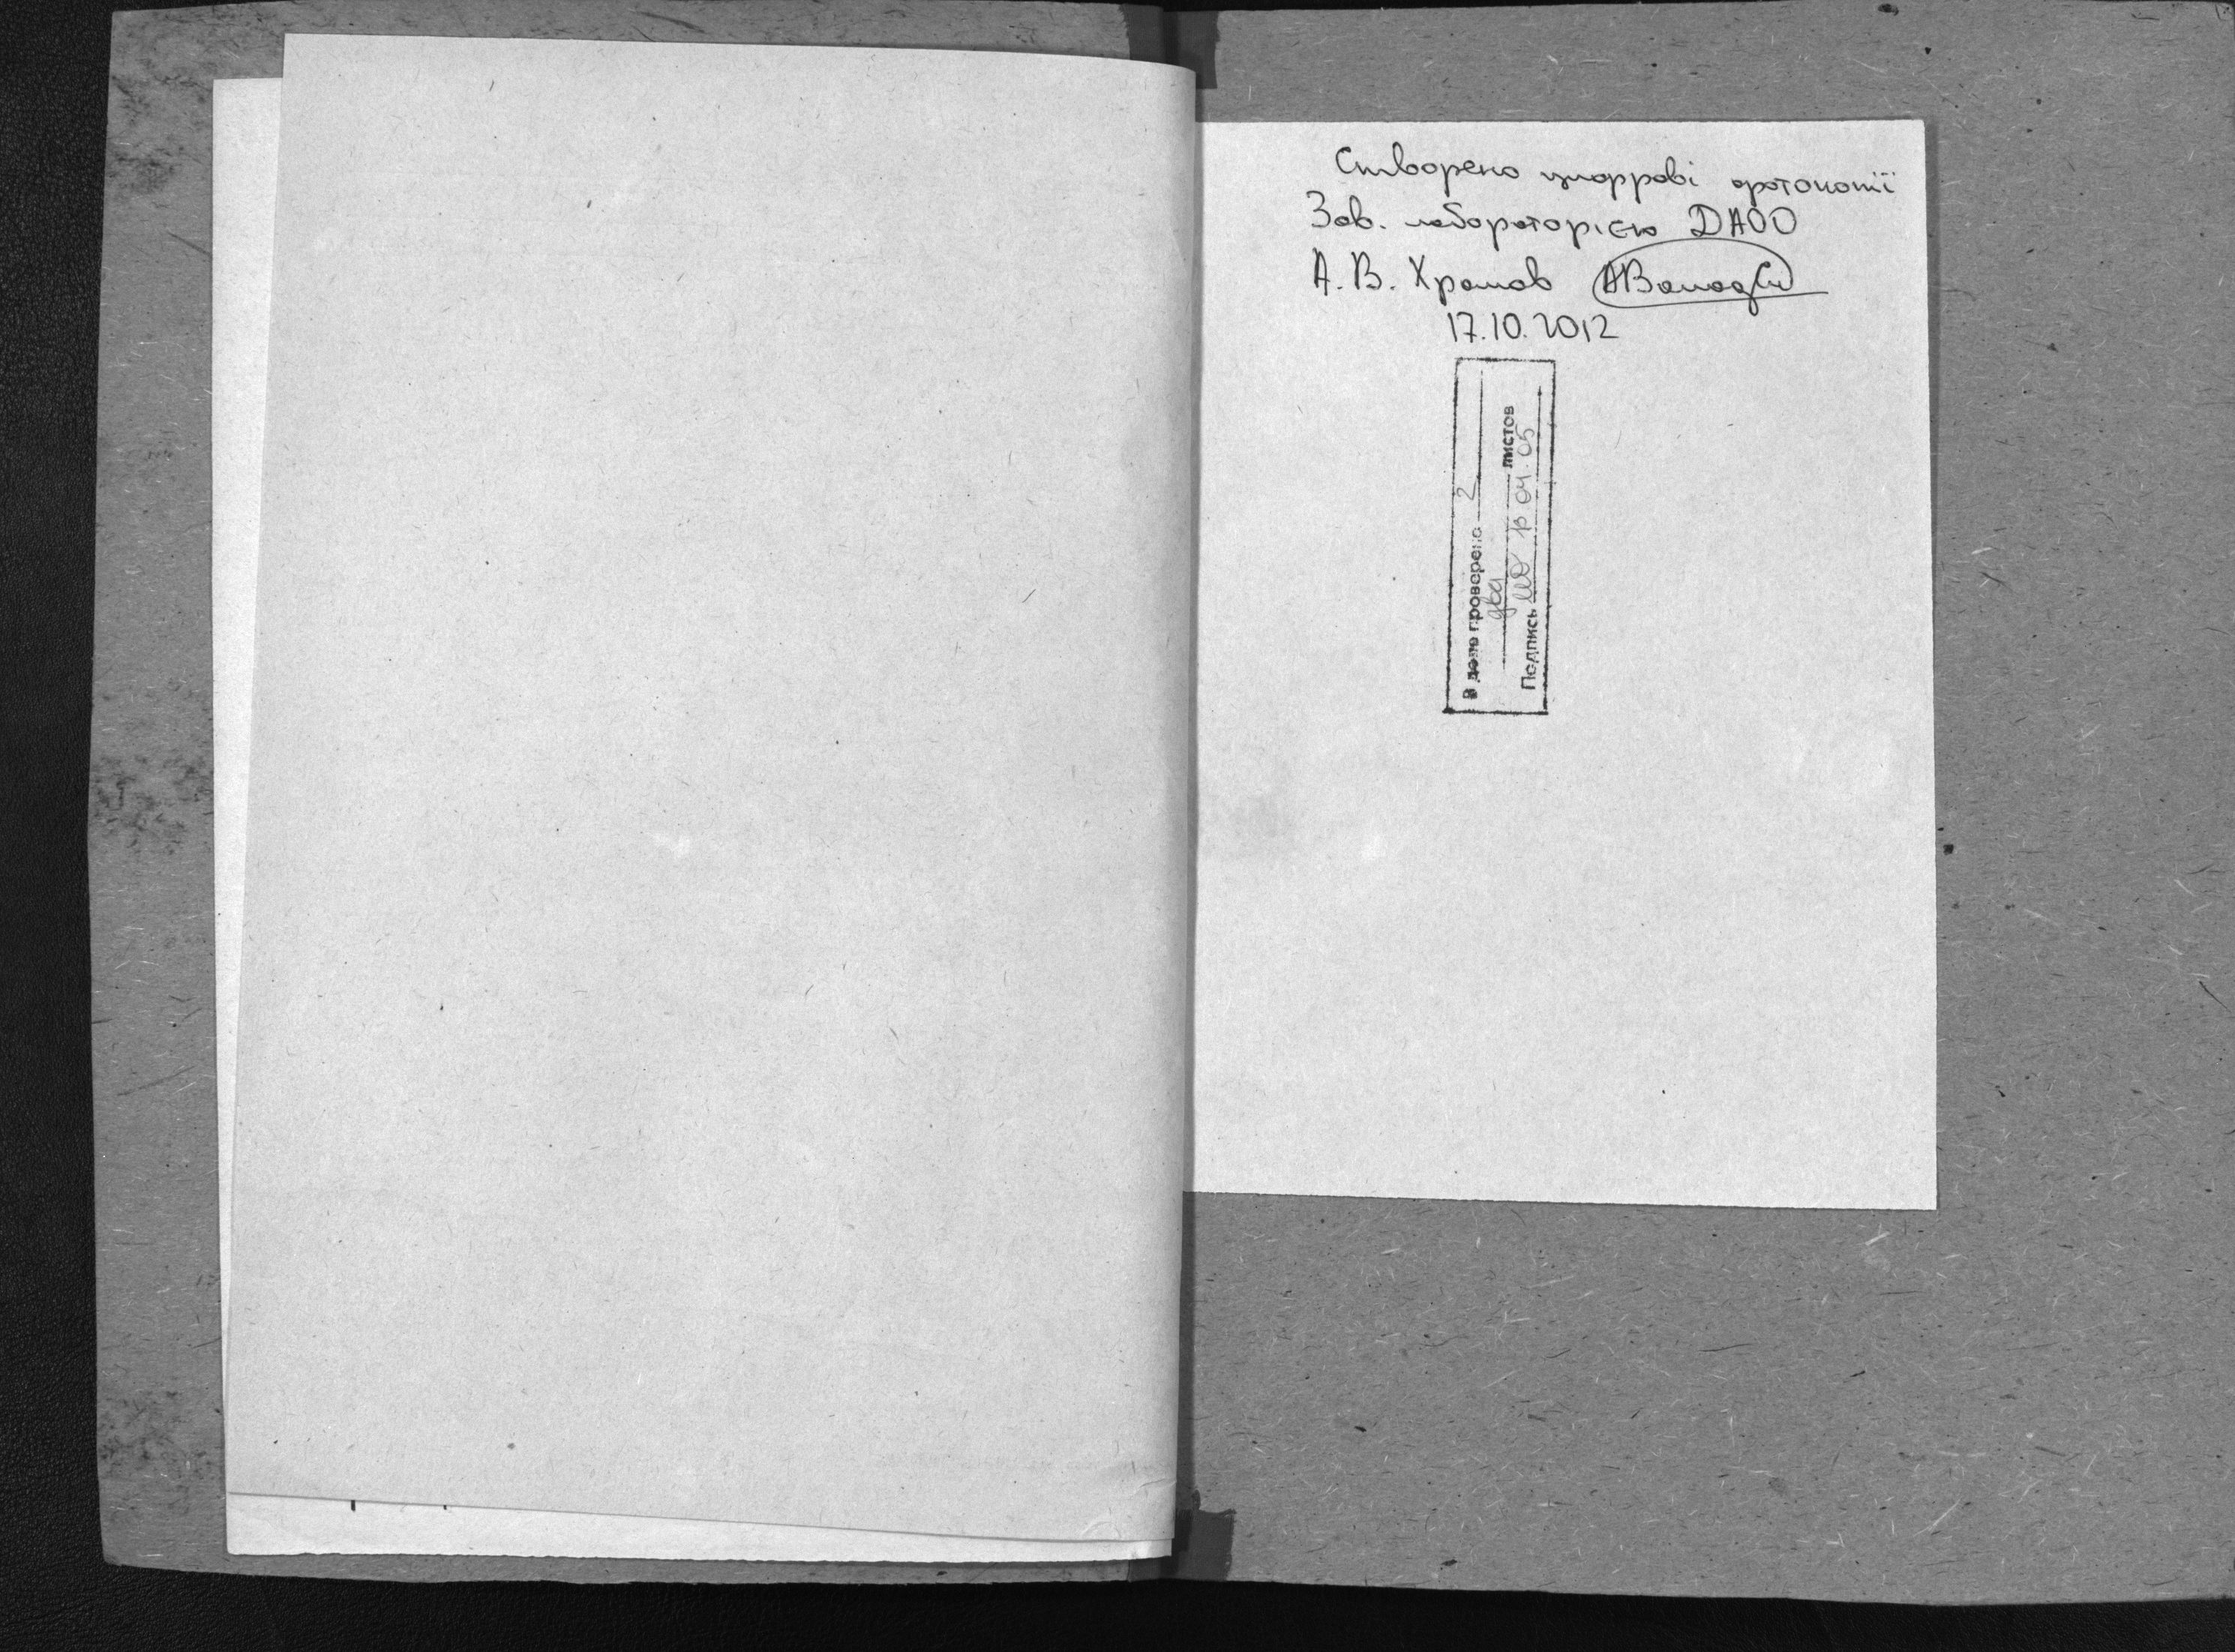 Створено цифрові фотокопії
Зав. лабораторією ДАОО
А. В. Храмов
17.10.2012
В деле проверено 2
два листов
Подпись 04.05